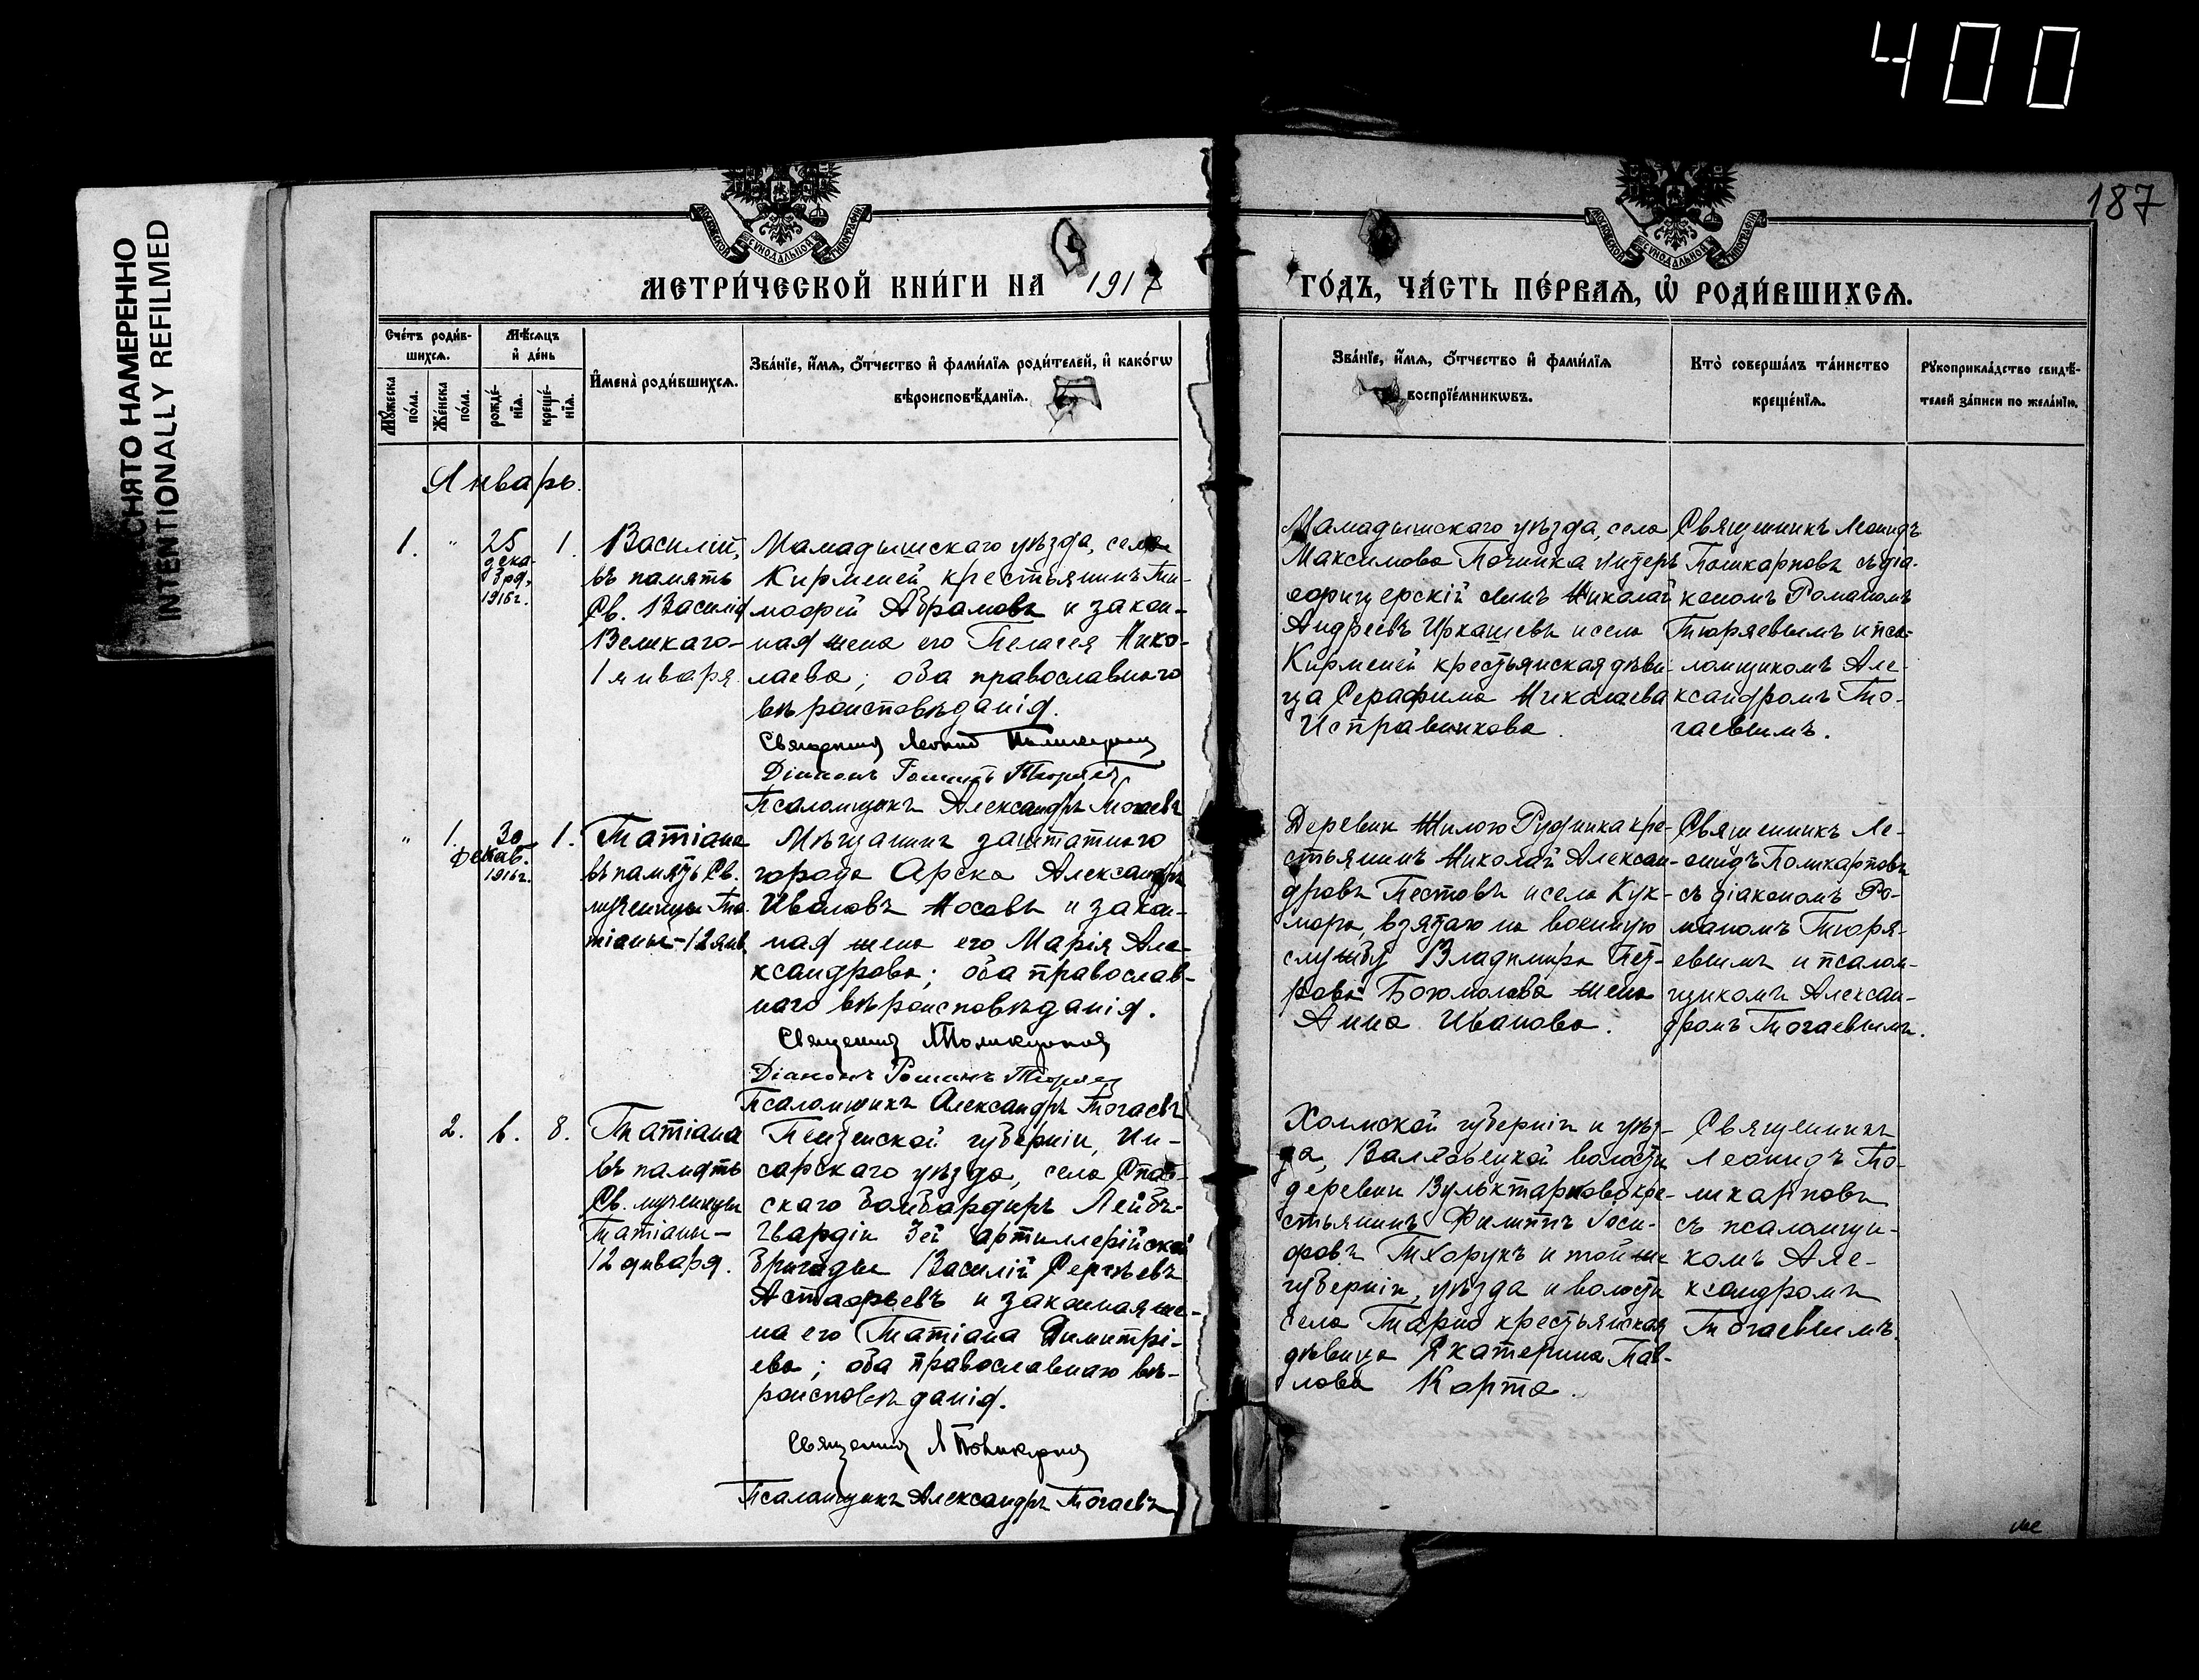 400
СНЯТО НАМЕРЕННО
INTENTIONALLY REFILMED
187
МОСКОВСКОЙ СѴНОДАЛЬНОЙ ТИПОГРАФІИ
МОСКОВСКОЙ СѴНОДАЛЬНОЙ ТИПОГРАФІИ
МЕТРИ́ЧЕСКОЙ КНИ́ГИ НА 1917
ГО́ДЪ, ЧА́СТЬ ПЕ́РВАѦ, Ѡ҆ РОДИ́ВШИХСѦ.
Сче́тъ роди́в-
шихсѧ.
Мꙋ́жеска
по́ла.
Же́нска
по́ла.
Мѣ́сѧцъ
и҆ де́нь
рожде́-
нїѧ.
креще́-
нїѧ.
И҆мена̀ роди́вшихсѧ.
Зва́нїе, и҆́мѧ, ѻ҆́тчество и҆ фами́лїѧ роди́телей, и҆ како́гѡ
вѣроисповѣ́данїѧ.
Зва́нїе, и҆́мѧ, ѻ҆́тчество и҆ фами́лїѧ
воспрїе́мникѡвъ.
Кто̀ соверша́лъ та́инство
креще́нїѧ.
Рꙋкоприкла́дство свидѣ́-
телей за́писи по жела́нїю.
Январь.
1. " 25 1.
дека-
бря,
1916г.
Василій,
въ память
Св. Василія
Великаго—
1 января
Мамадышскаго уѣзда, села
Кирменей крестьянинъ Ти-
мофей Абрамовъ и закон-
ная жена его Пелагея Нико-
лаева; оба православнаго
вѣроисповѣданія.
Священникъ Леонид Поликарпов
Діаконъ Романъ Тюряев
Псаломщикъ Александръ Тогаевъ
Мамадышскаго уѣзда, села
Максимова Починка
Николай
Андреевъ Иркашевъ и села
Кирменей крестьянская дѣви-
ца Серафима Николаева
Исправникова.
Священникъ Леонидъ
Поликарповъ съ діа-
кономъ Романомъ
Тюряевымъ и пса-
ломщикомъ Але-
ксандромъ То-
гаевымъ.
" 1. 30 1.
декаб.
1916г.
Татіана
въ память Св.
мученицы Та-
тіаны—12 янв.
Мѣщанинъ заштатнаго
города Арска Александръ
Ивановъ Носовъ и закон-
ная жена его Марія Але-
ксандрова; оба православ-
наго вѣроисповѣданія.
Священникъ Л Поликарпов
Діаконъ Романъ Тюряев
Псаломщикъ Александръ Тогаевъ
Деревни Жилого Рудника кре-
стьянинъ Николай Алексан-
дровъ Пестовъ и села Кук-
мора, взятаго на военную
службу Владимира Пет-
рова Богомолова жена
Анна Иванова.
Священникъ Ле-
онидъ Поликарповъ
съ діакономъ Ро-
маномъ Тюря-
евымъ и псалом-
щикомъ Алексан-
дромъ Тогаевымъ.
2. 6. 8.
Татіана
въ память
Св. мученицы
Татіаны—
12 января.
Пензенской губерніи, Ин-
сарскаго уѣзда, села Спас-
скаго бомбардиръ Лейбъ-
Гвардіи 3ей артиллерійской
бригады Василій Сергѣевъ
Астафьевъ и законная же-
на его Татіана Димитрі-
ева; оба православнаго вѣ-
роисповѣданія.
Священникъ Л Поликарпов
Псаломщикъ Александръ Тогаевъ
Холмской губерніи и уѣз-
да, волости
деревни кре-
стьянинъ Филиппъ Іоси-
фовъ Тхорукъ и той же
губерніи, уѣзда и волости
села Тарно крестьянская
дѣвица Екатерина Пав-
лова Корта.
Священникъ
Леонидъ По-
ликарповъ
съ псаломщи-
комъ Але-
ксандромъ
Тогаевымъ.